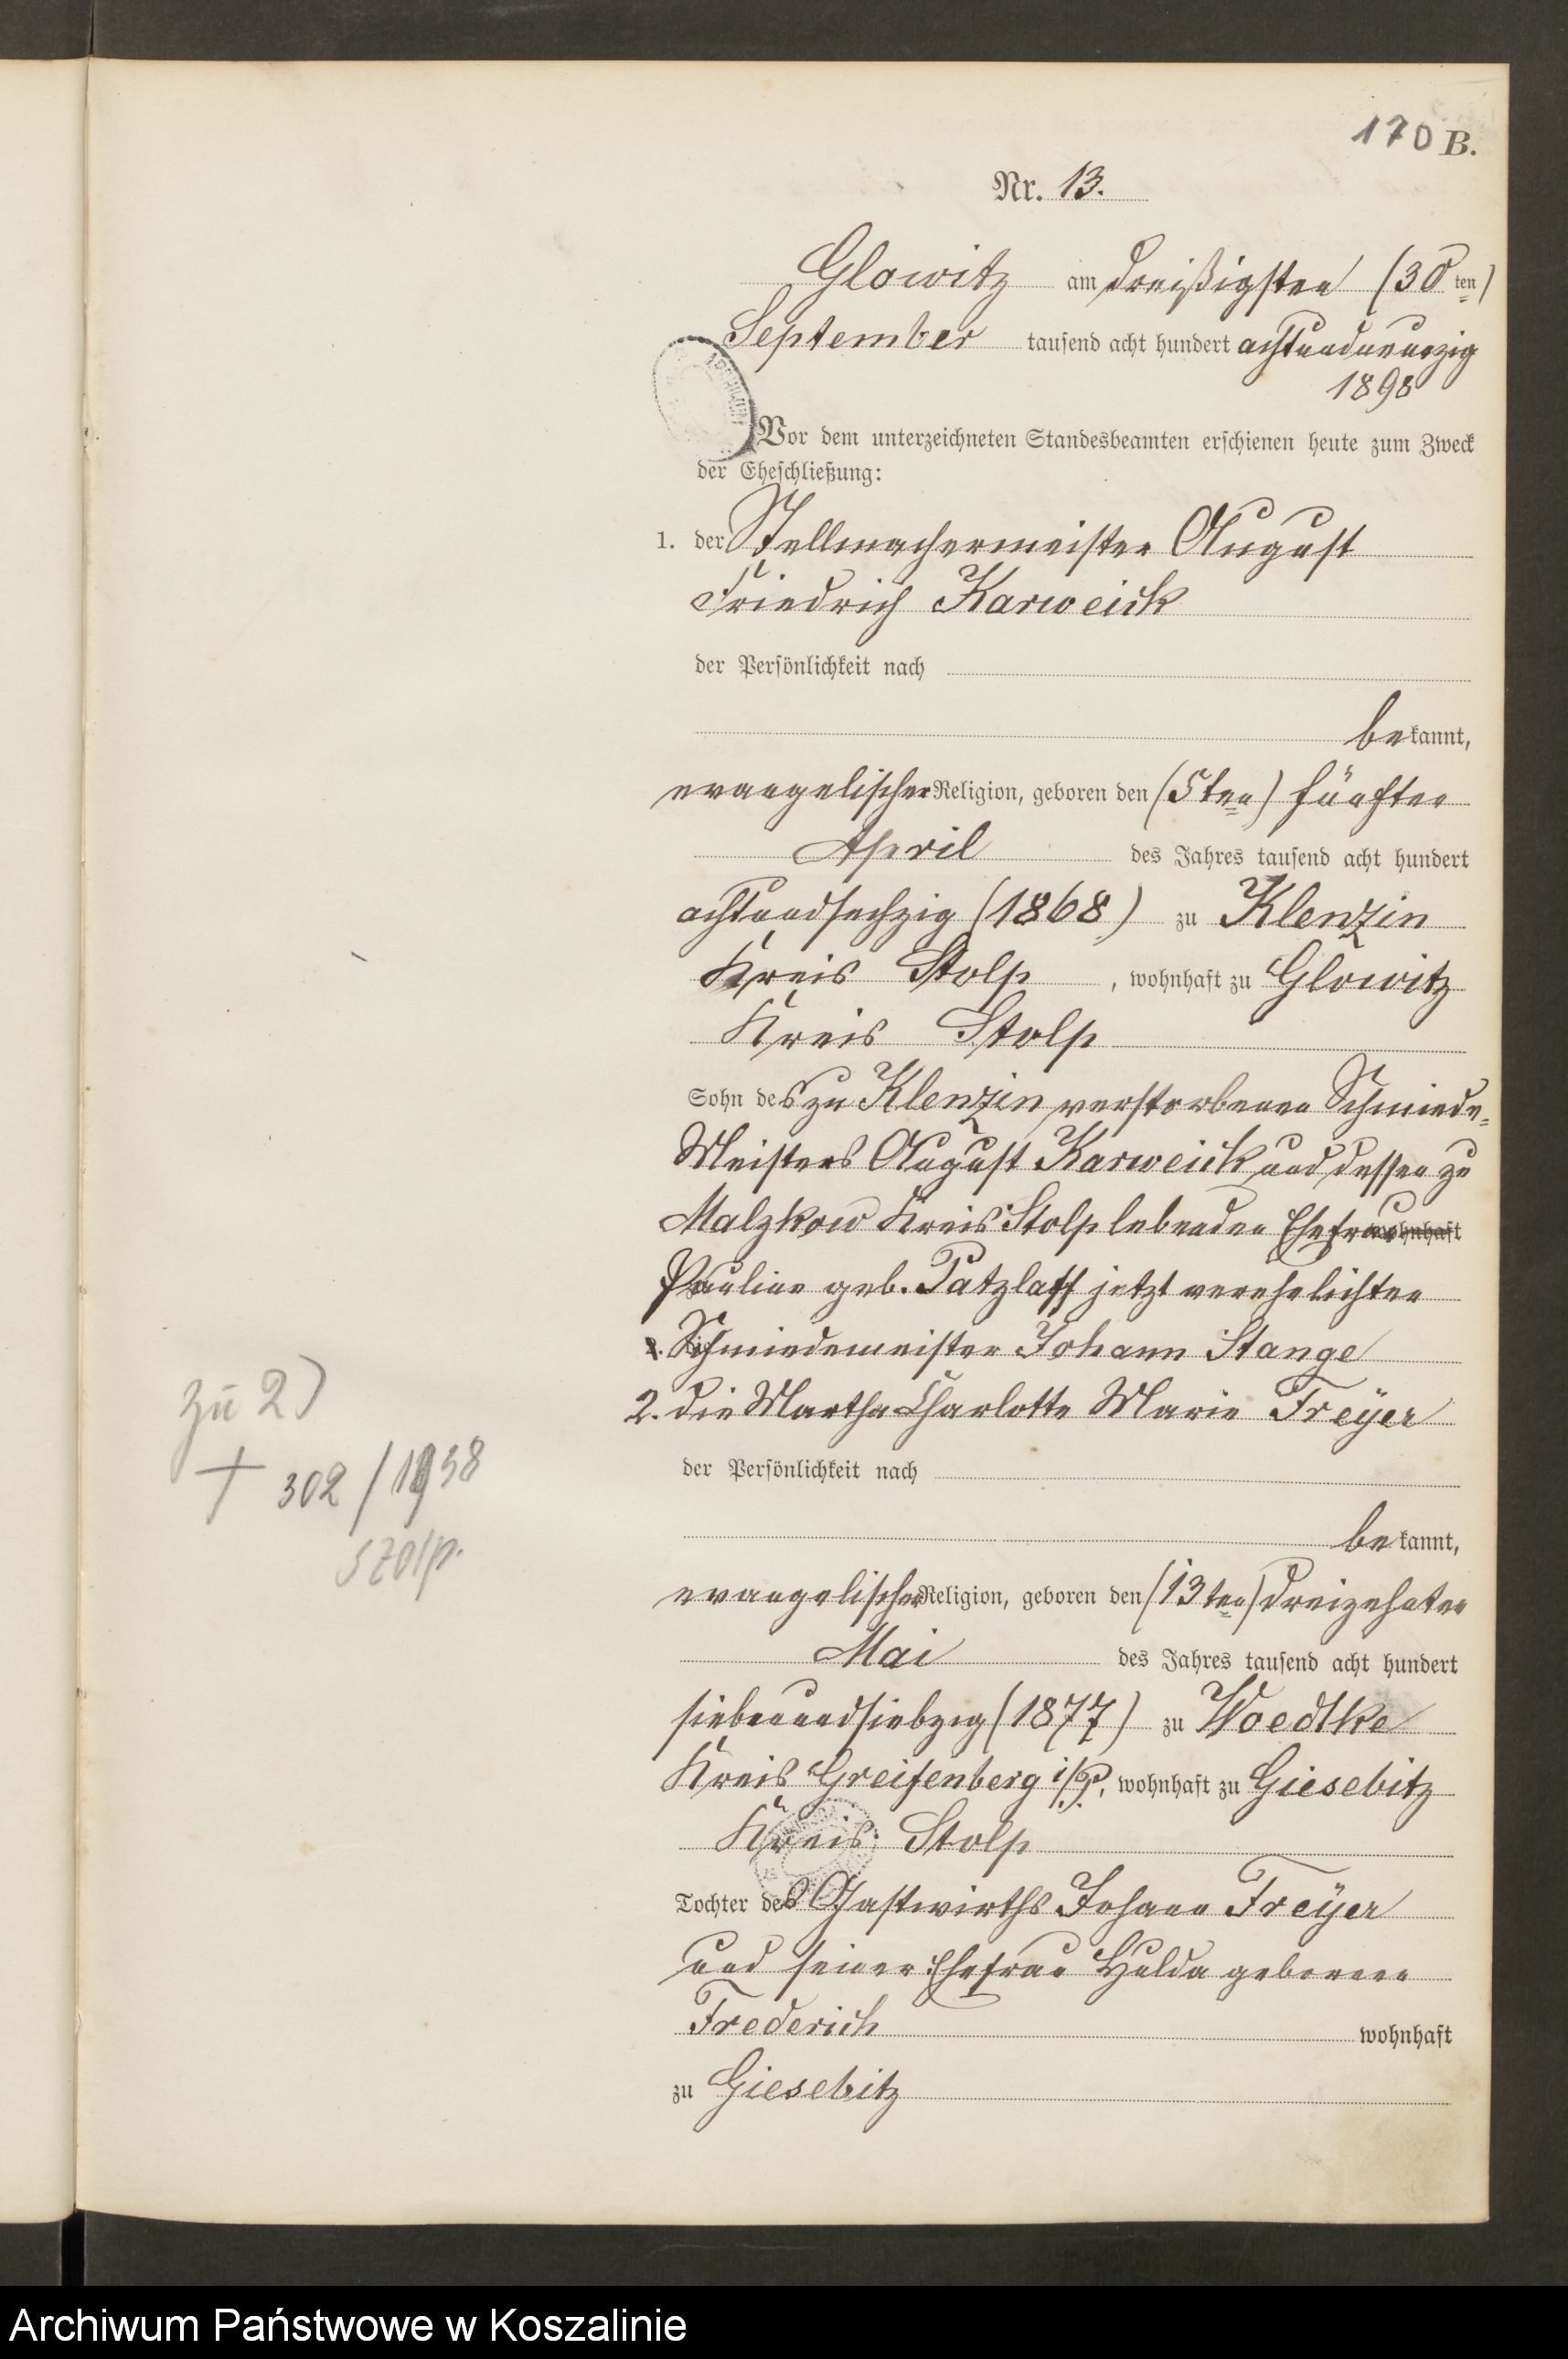 170 B.
Nr. 13.
Glowitz am dreißigsten (30ten)
September tausend acht hundert achtundneunzig
1898
Vor dem unterzeichneten Standesbeamten erschienen heute zum Zweck
der Eheschließung:
1. der Stellmachermeister August
Friedrich Karweick
der Persönlichkeit nach
bekannt,
evangelischer Religion, geboren den (5ten) fünften
April des Jahres tausend acht hundert
achtundsechzig (1868) zu Klenzin
Kreis Stolp, wohnhaft zu Glowitz
Kreis Stolp
Sohn des zu Klenzin verstorbenen Schmiede-
Meisters August Karweick und dessen zu
Malzkow Kreis Stolp lebenden Ehefrau wohnhaft
Pauline geb. Patzlaff jetzt verehelichten
Schmiedemeister Johann Stange
2. die Martha Charlotte Marie Freÿer
der Persönlichkeit nach
bekannt,
zu 2)
† 302/1938
Stolp.
evangelischer Religion, geboren den (13ten) dreizehnten
Mai des Jahres tausend acht hundert
siebenundsiebzig (1877) zu Woedtke
Kreis Greifenberg i/P., wohnhaft zu Giesebitz
Kreis Stolp
Tochter des Gastwirths Johann Freÿer
und seiner Ehefrau Hulda geborenen
Frederich wohnhaft
zu Giesebitz
Archiwum Państwowe w Koszalinie